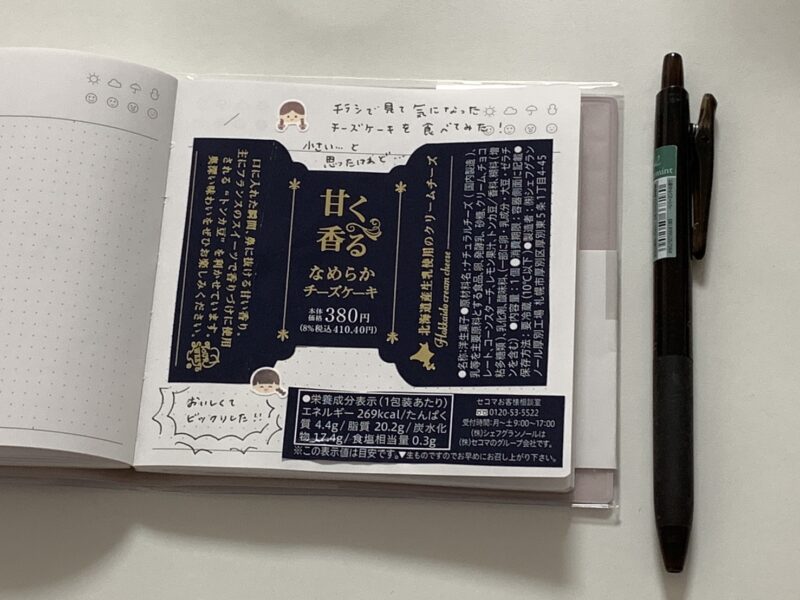 チラシで見て気になった
チーズケーキを食べてみた!
小さい…と
思ったけれど…
口に入れた瞬間、鼻に抜ける甘い香り。
主にフランスのスイーツで香りづけに使用
される"トンカ豆"を利かせています。
奥深い味わいをぜひお楽しみください。
甘く
香る
なめらか
チーズケーキ
本体価格 380円
(8%税込 410.40円)
北海道産生乳使用のクリームチーズ
Hokkaido cream cheese
●名称:洋生菓子●原材料名:ナチュラルチーズ(国内製造)、
乳等を主要原料とする食品、卵、発酵乳、砂糖、クリーム、チョコ
レート、コーンスターチ、レモン果汁、トンカ豆/香料、糊料(増
粘多糖類)、乳化剤、酸味料、(一部に卵・乳成分・大豆・ゼラチ
ンを含む)●内容量:1個●消費期限:容器側面に記載●
保存方法:要冷蔵(10℃以下)●製造者:(株)シェフグラン
ノール厚別工場 札幌市厚別区厚別東5条1丁目4-45
おいしくて
ビックリした!!
●栄養成分表示(1包装あたり)
エネルギー 269kcal/たんぱく
質 4.4g/脂質 20.2g/炭水化
物 17.4g/食塩相当量 0.3g
※この表示値は目安です。▼生ものですのでお早めにお召し上がり下さい。
セコマお客様相談室
0120-53-5522
受付時間:月~土9:00~17:00
(株)シェフグランノールは
(株)セコマのグループ会社です。